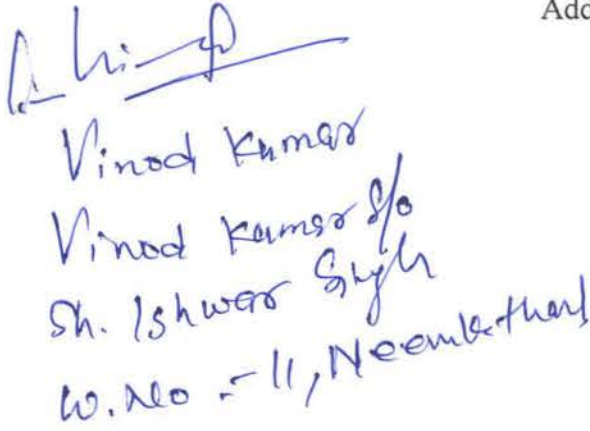 Add
Vinod Kumar
Vinod Kumar S/o
Sh. Ishwar Singh
W. No :- 11, Neemkathan